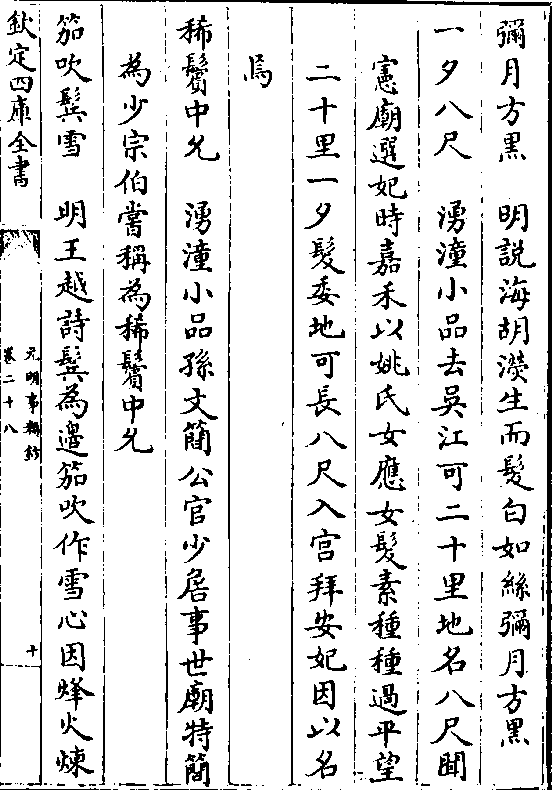 彌月方黑　明說海胡濙生而髮白如絲彌月方黑
一夕八尺　湧潼小品去吳江可二十里地名八尺聞
憲廟選妃時嘉禾以姚氏女應女髮素種種過平望
二十里一夕髮委地可長八尺入宫拜安妃因以名
焉
稀鬢中允　湧潼小品孫文簡公官少詹事世廟特簡
為少宗伯嘗稱為稀鬢中允
笳吹鬂雪　明王越詩鬂為邉笳吹作雪心因烽火煉
欽定四庫全書
元明事類鈔
卷二十八
十